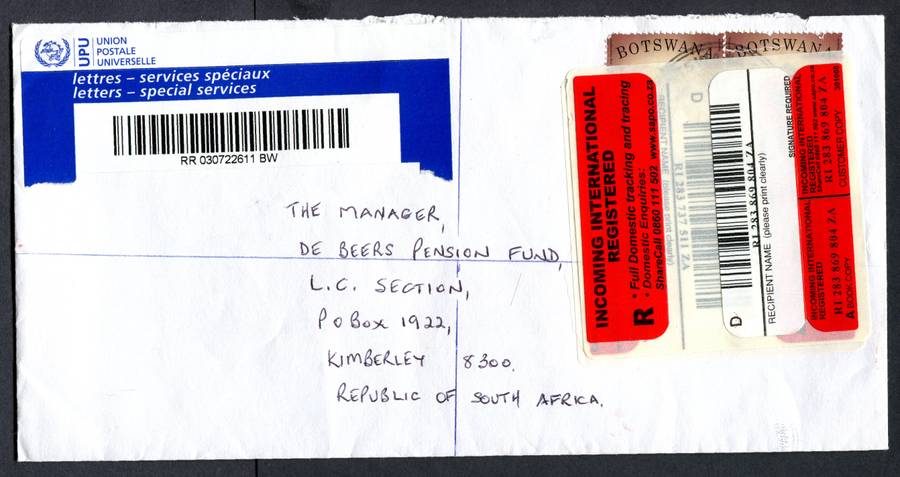 UPU
UNION
POSTALE
UNIVERSELLE
lettres – services spéciaux
letters – special services
RR 030722611 BW
BOTSWANA BOTSWANA
THE MANAGER,
DE BEERS PENSION FUND,
L.C. SECTION,
P O BOX 1922,
KIMBERLEY 8300.
REPUBLIC OF SOUTH AFRICA.
INCOMING INTERNATIONAL
REGISTERED
R
* Full Domestic tracking and tracing
* Domestic Enquiries:
ShareCall 0860 111 502 www.sapo.co.za
D
RECIPIENT NAME (please print clearly)
RI 283 737 511 ZA
D
RI 283 869 804 ZA
RECIPIENT NAME (please print clearly)
SIGNATURE REQUIRED
INCOMING INTERNATIONAL
REGISTERED
ShareCall 0860 111 502 www.sapo.co.za
RI 283 869 804 ZA
CUSTOMER COPY
INCOMING INTERNATIONAL
REGISTERED
RI 283 869 804 ZA
A BOOK COPY